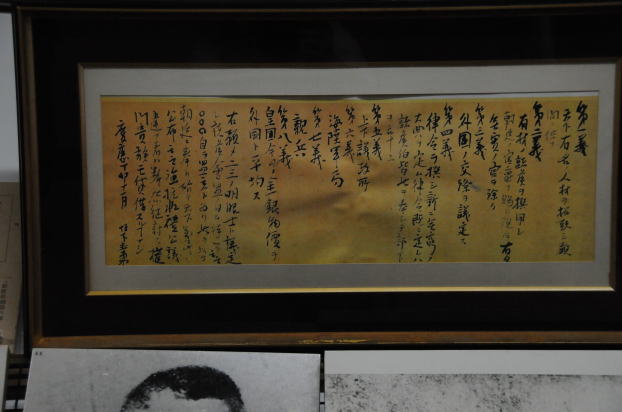 第一義
天下有名ノ人材ヲ招致シ顧
問ニ供フ
第二義
有材ノ諸侯ヲ撰用シ
朝廷ノ官爵ヲ賜ヒ現今有名
無実ノ官ヲ除ク
第三義
外国ノ交際ヲ議定ス
第四義
律令ヲ撰シ新ニ無窮ノ
大典ヲ定ム律令既ニ定レハ
諸侯伯皆此ヲ奉シテ部下
ヲ率ユ
第五義
上下議政所
第六義
海陸軍局
第七義
親兵
第八義
皇国今日ノ金銀物價ヲ
外国ト平均ス
右預メ二三ノ明眼士ト議定
シ諸侯會盟ノ日ヲ待ツテ云云
○○○自ラ盟主ト為リ此ヲ以テ
朝廷ニ奉リ始テ天下萬民ニ
公布云云強抗非礼公議ニ
違フ者ハ断然征討ス權
門貴族モ貸借スルコトナシ
慶應丁卯十一月 坂本直柔